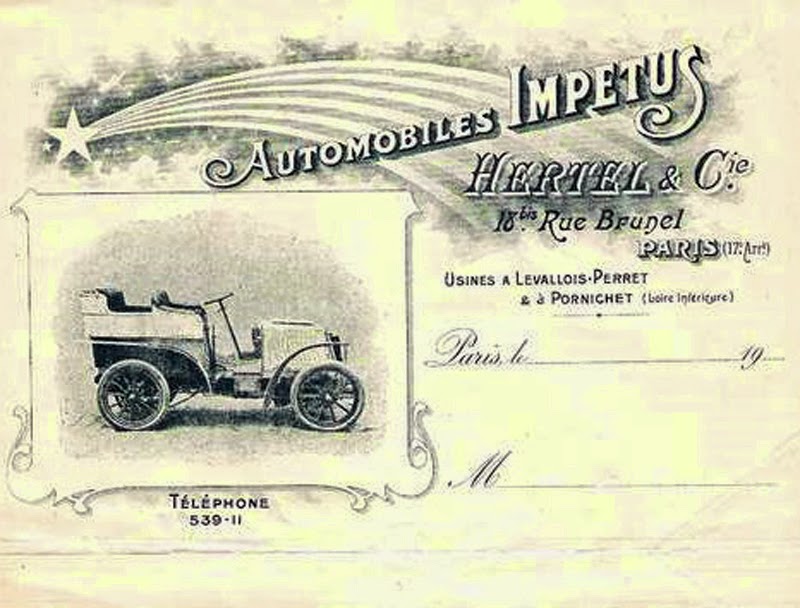 AUTOMOBILES IMPETUS
HERTEL & Cie
18bis Rue Brunel
PARIS (17e Arrt)
USINES A LEVALLOIS-PERRET
& à PORNICHET (Loire Inférieure)
Paris, le 19
M
TÉLÉPHONE
539-11